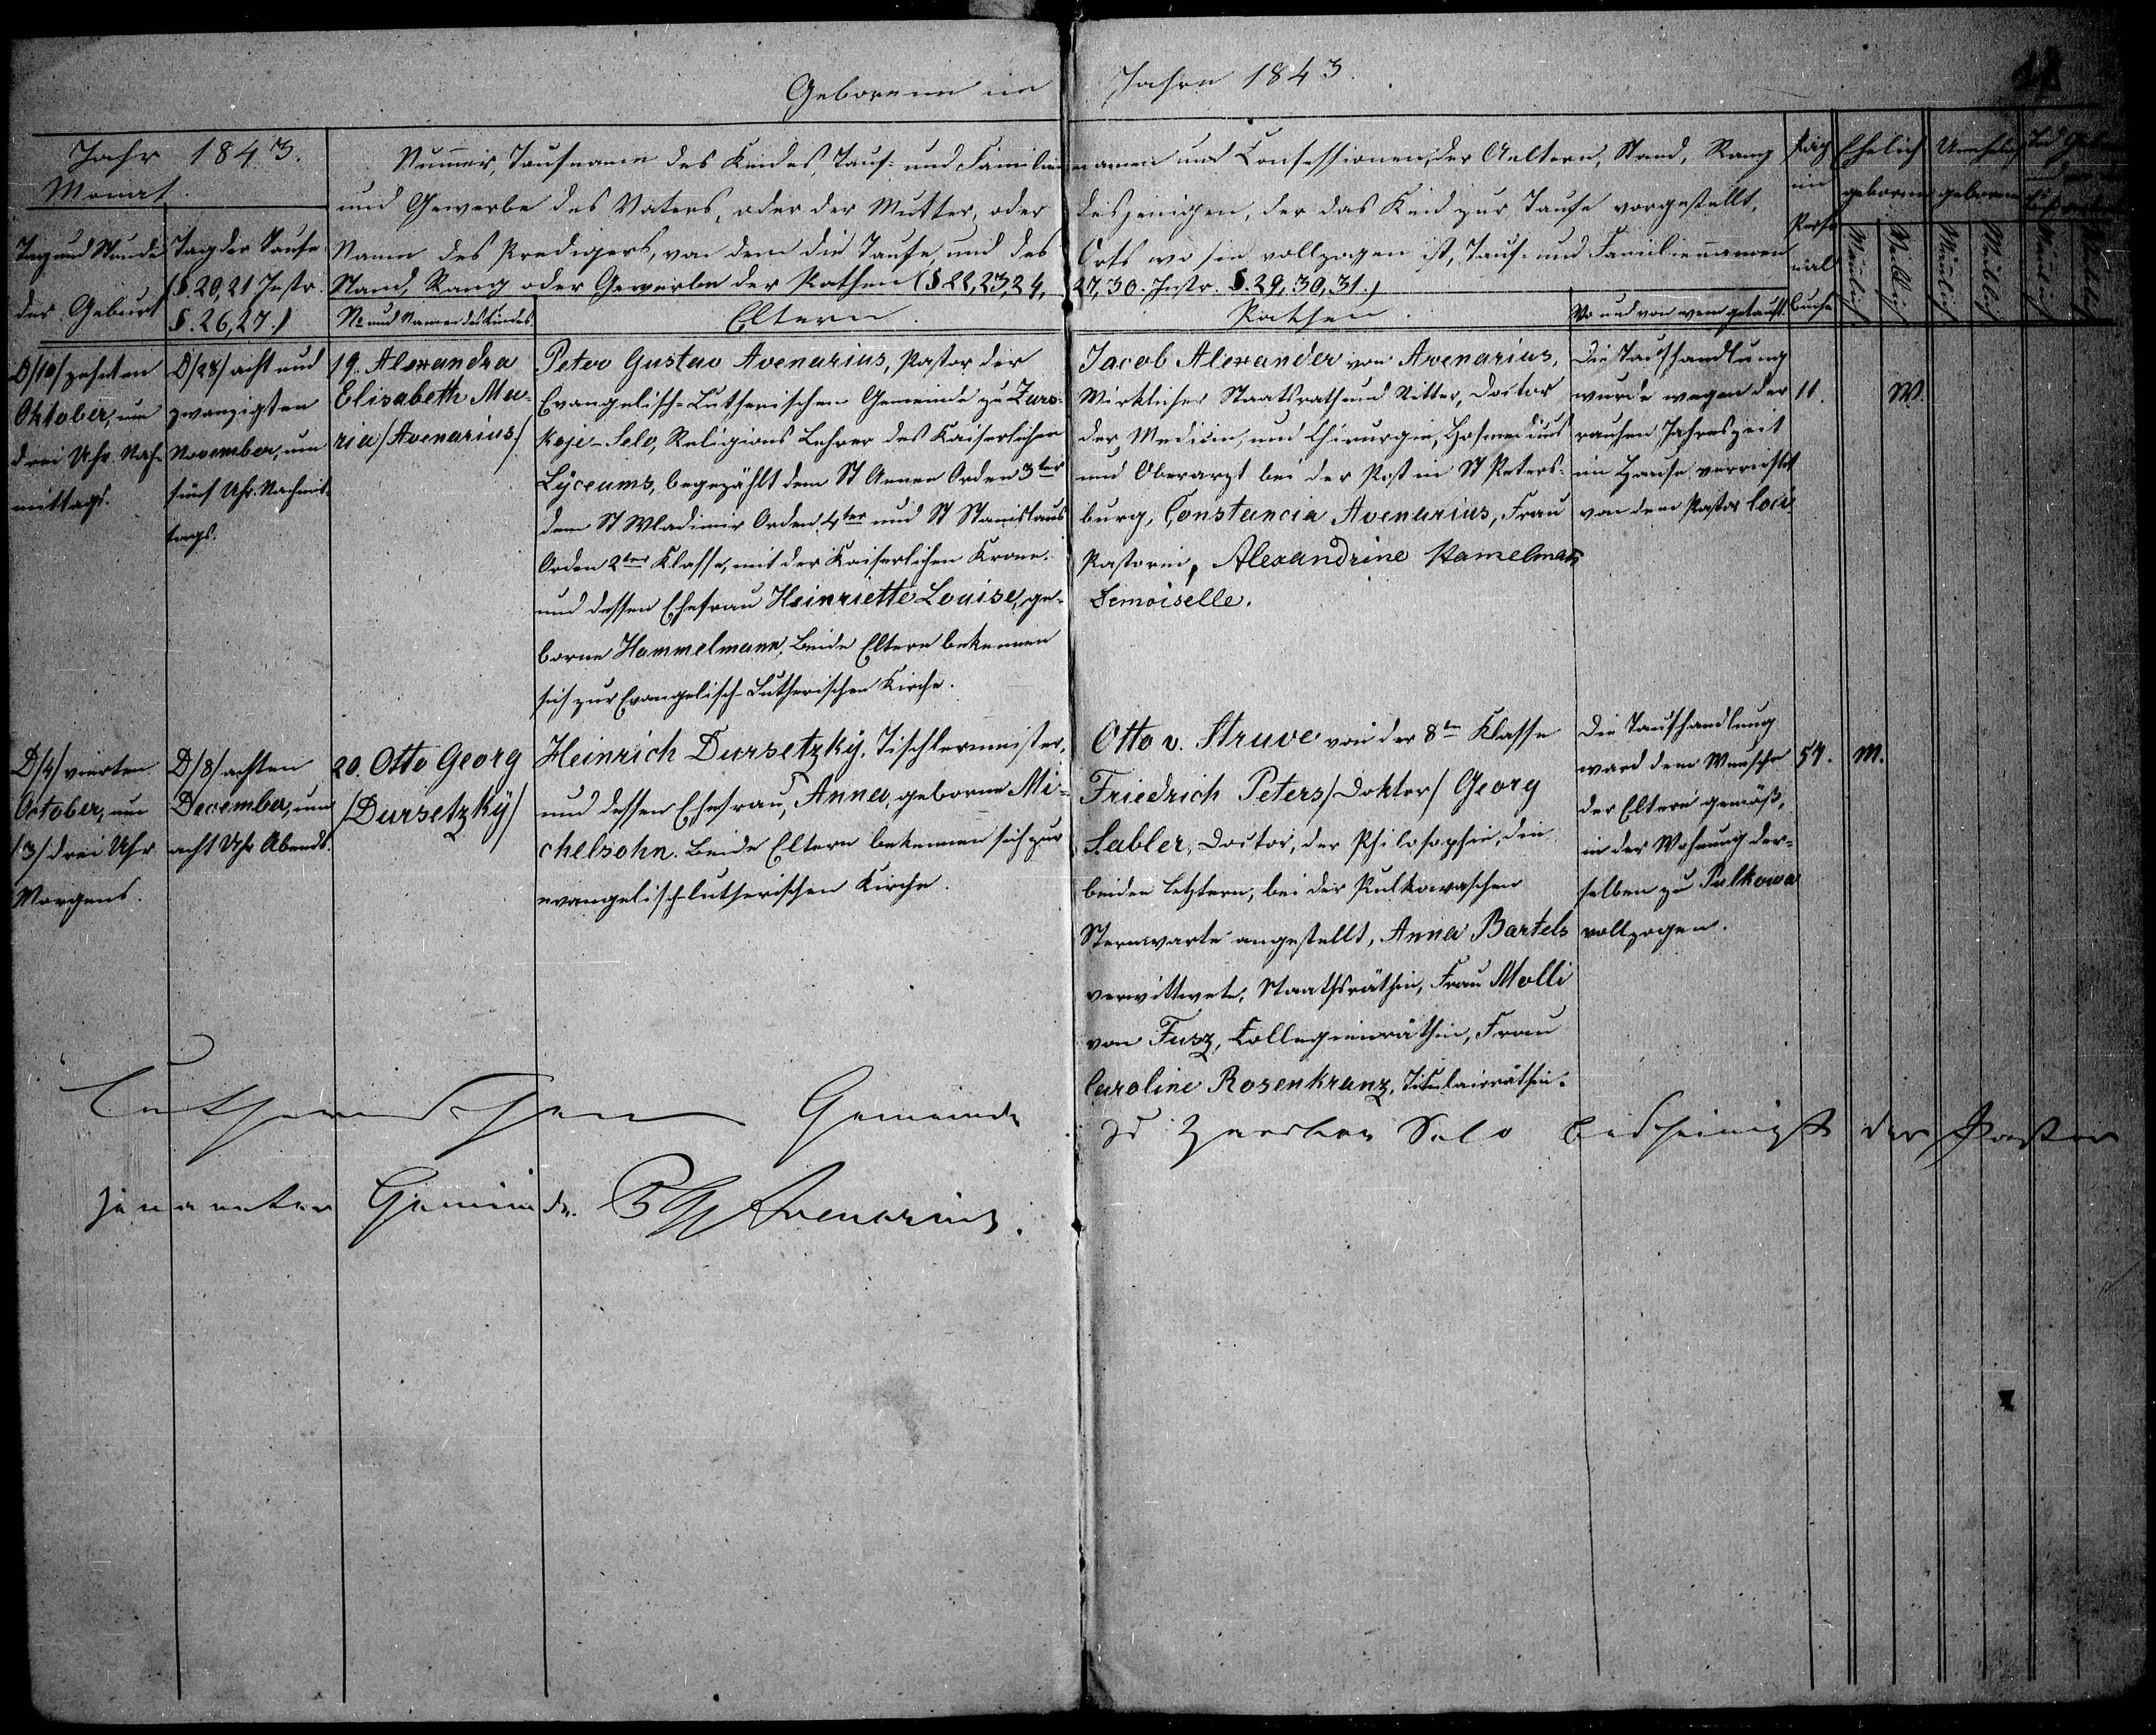 Geborene im Jahre 1843.
Jahr 1843.
Monat.
Tag und Stunde
der Geburt
Tag der Taufe
(§. 20, 21 Instr.
§. 26, 27.)
Nummer, Taufname des Kindes, Tauf- und Familiennamen und Confessionen, der Aeltern, Stand, Rang
und Gewerbe des Vaters, oder der Mutter, oder desjenigen, der das Kind zur Taufe vorgestellt,
Name des Predigers, von dem die Taufe, und des Orts wo sie vollzogen ist, Tauf- und Familiennamen
Stand, Rang oder Gewerbe der Pathen (§ 22, 23, 24, 27, 30. Instr. §. 29, 30, 31.)
No und Namen des Kindes
Eltern.
Pathen.
Wo und von wem getauft.
Pag
im
Perso
nal
buche
Ehelich
geboren
Unehelich
geboren
Männlich
Weiblich
Männlich
Weiblich
Männlich
Weiblich
D/10/ zehnten
Oktober, um
drei Uhr Nach-
mittags.
D/28/ acht und
zwanzigsten
November, um
fünf Uhr Nachmit-
tags.
19. Alexandra
Elisabeth Ma-
ria /Avenarius/
Peter Gustav Avenarius, Pastor der
Evangelisch-Lutherischen Gemeinde zu Zars-
koje-Selo, Religions Lehrer des Kaiserlichen
Lyceums, begezählt dem St Annen Orden 3ter
dem St Wladimir Orden 4ter und St Stanislaus
Orden 2ter Klasse, mit der Kaiserlichen Krone.
und dessen Ehefrau Heinriette Louise, ge-
borne Hammelmann, Beide Eltern bekennen
sich zur Evangelisch-Lutherischen Kirche.
Jacob Alexander von Avenarius,
Wirklicher Staatsrath und Ritter, Doctor
der Medicin, und Chirurgie, Hofmedicus
und Oberarzt bei der Post in St Peters-
burg, Constancia Avenarius, Frau
Pastorin, Alexandrine Hamelman
Demoiselle.
Die Taufhandlung
wurde wegen der
rauhen Jahreszeit
im Hause verrichtet
von dem Pastor loci
11.
W.
D/4/ vierten
October, um
/3/ drei Uhr
Morgens.
D/8/ achten
December, um
acht Uhr Abends.
20. Otto Georg
/Dursetzkÿ/
Heinrich Dursetzkÿ, Tischlermeister,
und dessen Ehefrau, Anna, geborne Mi-
chelsohn. Beide Eltern bekennen sich zur
evangelisch-lutherischen Kirche.
Otto v. Struve von der 8ten Klasse
Friedrich Peters /Doktor/ Georg
Sabler, Doctor, der Philosophie, die
beiden letztern, bei der Pulkowaschen
Sternwarte angestellt, Anna Bartels
verwittwete, Staatsräthin, Frau Molli
von Fusz, Collegienräthin, Frau
Caroline Rosenkranz, Titulairräthin.
Die Taufhandlung
ward dem Wunsche
der Eltern gemäß,
in der Wohnung der-
selben zu Pulkowa
vollzogen.
54.
M.
Lutherischen Gemeinde zu Zarskoe Selo bescheinigt der Pastor
genannter Gemeinde. P G Avenarius.